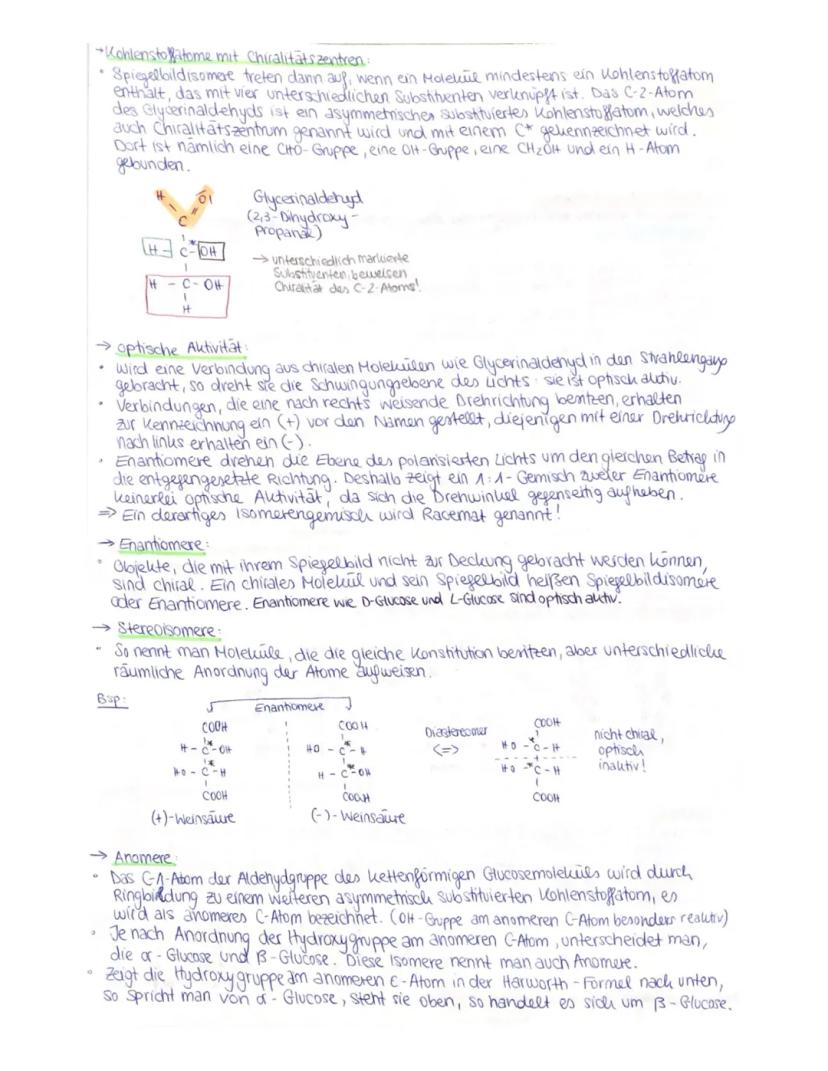 → Kohlenstoffatome mit Chiralitätszentren:
• Spiegelbildisomere treten dann auf, wenn ein Molekül mindestens ein Kohlenstoffatom
enthält, das mit vier unterschiedlichen Substituenten verknüpft ist. Das C-2-Atom
des Glycerinaldehyds ist ein asymmetrisches substituiertes Kohlenstoffatom, welches
auch Chiralitätszentrum genannt wird und mit einem C* gekennzeichnet wird.
Dort ist nämlich eine CHO-Gruppe, eine OH-Gruppe, eine CH₂OH und ein H-Atom
gebunden.
H O
C
H - C* - OH
H - C - OH
H
Glycerinaldehyd
(2,3-Dihydroxy-
Propanal)
→ unterschiedlich markierte
Substituenten beweisen
Chiralität des C-2-Atoms!
→ optische Aktivität:
• Wird eine Verbindung aus chiralen Molekülen wie Glycerinaldehyd in den Strahlengang
gebracht, so dreht sie die Schwingungsebene des Lichts: sie ist optisch aktiv.
• Verbindungen, die eine nach rechts weisende Drehrichtung besitzen, erhalten
zur Kennzeichnung ein (+) vor den Namen gestellt, diejenigen mit einer Drehrichtung
nach links erhalten ein (-).
• Enantiomere drehen die Ebene des polarisierten Lichts um den gleichen Betrag in
die entgegengesetzte Richtung. Deshalb zeigt ein 1:1-Gemisch zweier Enantiomere
keinerlei optische Aktivität, da sich die Drehwinkel gegenseitig aufheben.
⇒ Ein derartiges Isomerengemisch wird Racemat genannt!
→ Enantiomere:
• Objekte, die mit ihrem Spiegelbild nicht zur Deckung gebracht werden können,
sind chiral. Ein chirales Molekül und sein Spiegelbild heißen Spiegelbildisomere
oder Enantiomere. Enantiomere wie D-Glucose und L-Glucose sind optisch aktiv.
→ Stereoisomere:
• So nennt man Moleküle, die die gleiche Konstitution besitzen, aber unterschiedliche
räumliche Anordnung der Atome aufweisen.
Bsp:
Enantiomere
COOH
H - C* - OH
HO - C* - H
COOH
(+)-Weinsäure
COOH
HO - C* - H
H - C* - OH
COOH
(-)-Weinsäure
Diastereomer
<=>
COOH
HO - *C - H
HO - *C - H
COOH
nicht chiral,
optisch
inaktiv!
→ Anomere:
• Das C-1-Atom der Aldehydgruppe des kettenförmigen Glucosemoleküls wird durch
Ringbindung zu einem weiteren asymmetrisch substituierten Kohlenstoffatom, es
wird als anomeres C-Atom bezeichnet. (OH-Gruppe am anomeren C-Atom besonders reaktiv)
• Je nach Anordnung der Hydroxygruppe am anomeren C-Atom, unterscheidet man,
die α-Glucose und β-Glucose. Diese Isomere nennt man auch Anomere.
• Zeigt die Hydroxygruppe am anomeren C-Atom in der Harworth-Formel nach unten,
so spricht man von α-Glucose, steht sie oben, so handelt es sich um β-Glucose.